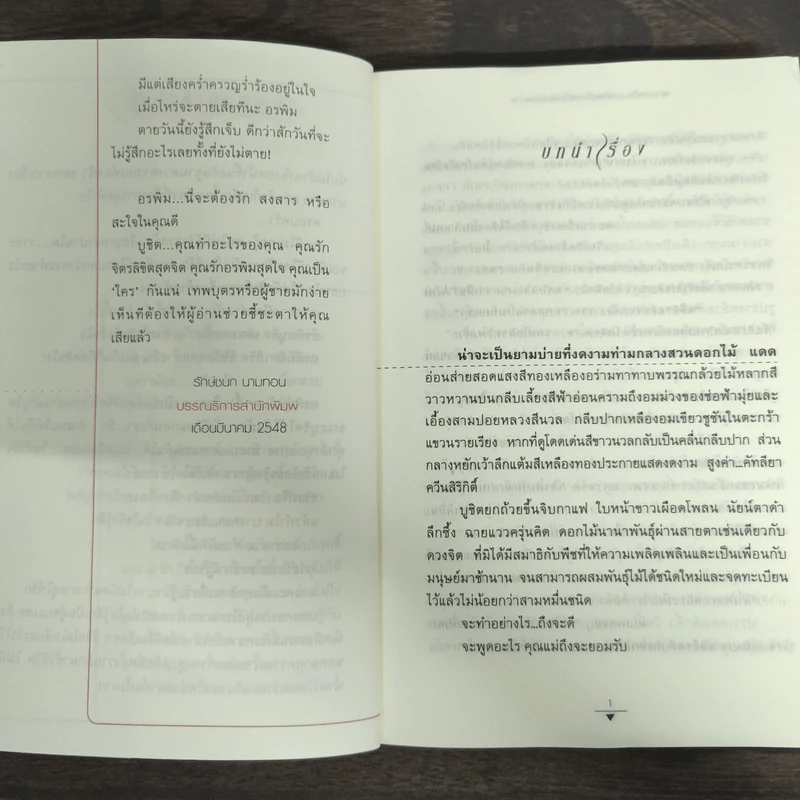 มีแต่เสียงคร่ำครวญร่ำร้องอยู่ในใจ
เมื่อไหร่จะตายเสียทีนะ อรพิม
ตายวันนี้ยังรู้สึกเจ็บ ดีกว่าสักวันที่จะ
ไม่รู้สึกอะไรเลยทั้งที่ยังไม่ตาย!
อรพิม...นี่จะต้องรัก สงสาร หรือ
สะใจในคุณดี
บูชิต...คุณทำอะไรของคุณ คุณรัก
จิตรลิขิตสุดจิต คุณรักอรพิมสุดใจ คุณเป็น
‘ใคร’ กันแน่ เทพบุตรหรือผู้ชายมักง่าย
เห็นทีต้องให้ผู้อ่านช่วยชี้ชะตาให้คุณ
เสียแล้ว
รักษ์ชนก นามทอน
บรรณาธิการสำนักพิมพ์
เดือนมีนาคม 2548
บทนำเรื่อง
น่าจะเป็นยามบ่ายที่งดงามท่ามกลางสวนดอกไม้ แดด
อ่อนส่ายสอดแสงสีทองเหลืองอร่ามทาทาบพรรณกล้วยไม้หลากสี
วาวหวานบนกลีบเลี้ยงสีฟ้าอ่อนครามถึงอมม่วงของช่อฟ้ามุ่ยและ
เอื้องสามปอยหลวงสีนวล กลีบปากเหลืองอมเขียวชูชันในตะกร้า
แขวนรายเรียง หากที่ดูโดดเด่นสีขาวนวลกลับเป็นคลื่นกลีบปาก ส่วน
กลางหยักเว้าลึกแต้มสีเหลืองทองประกายแสดงดงาม สูงค่า...คัทลียา
ควีนสิริกิติ์
บูชิตยกถ้วยขึ้นจิบกาแฟ ใบหน้าขาวเผือดโพลน นัยน์ตาดำ
ลึกซึ้ง ฉายแววครุ่นคิด ดอกไม้นานาพันธุ์ผ่านสายตาเช่นเดียวกับ
ดวงจิต ที่มิได้มีสมาธิกับพืชที่ให้ความเพลิดเพลินและเป็นเพื่อนกับ
มนุษย์มาช้านาน จนสามารถผสมพันธุ์ไม้ได้ชนิดใหม่และจดทะเบียน
ไว้แล้วไม่น้อยกว่าสามหมื่นชนิด
จะทำอย่างไร...ถึงจะดี
จะพูดอะไร คุณแม่ถึงจะยอมรับ
๑